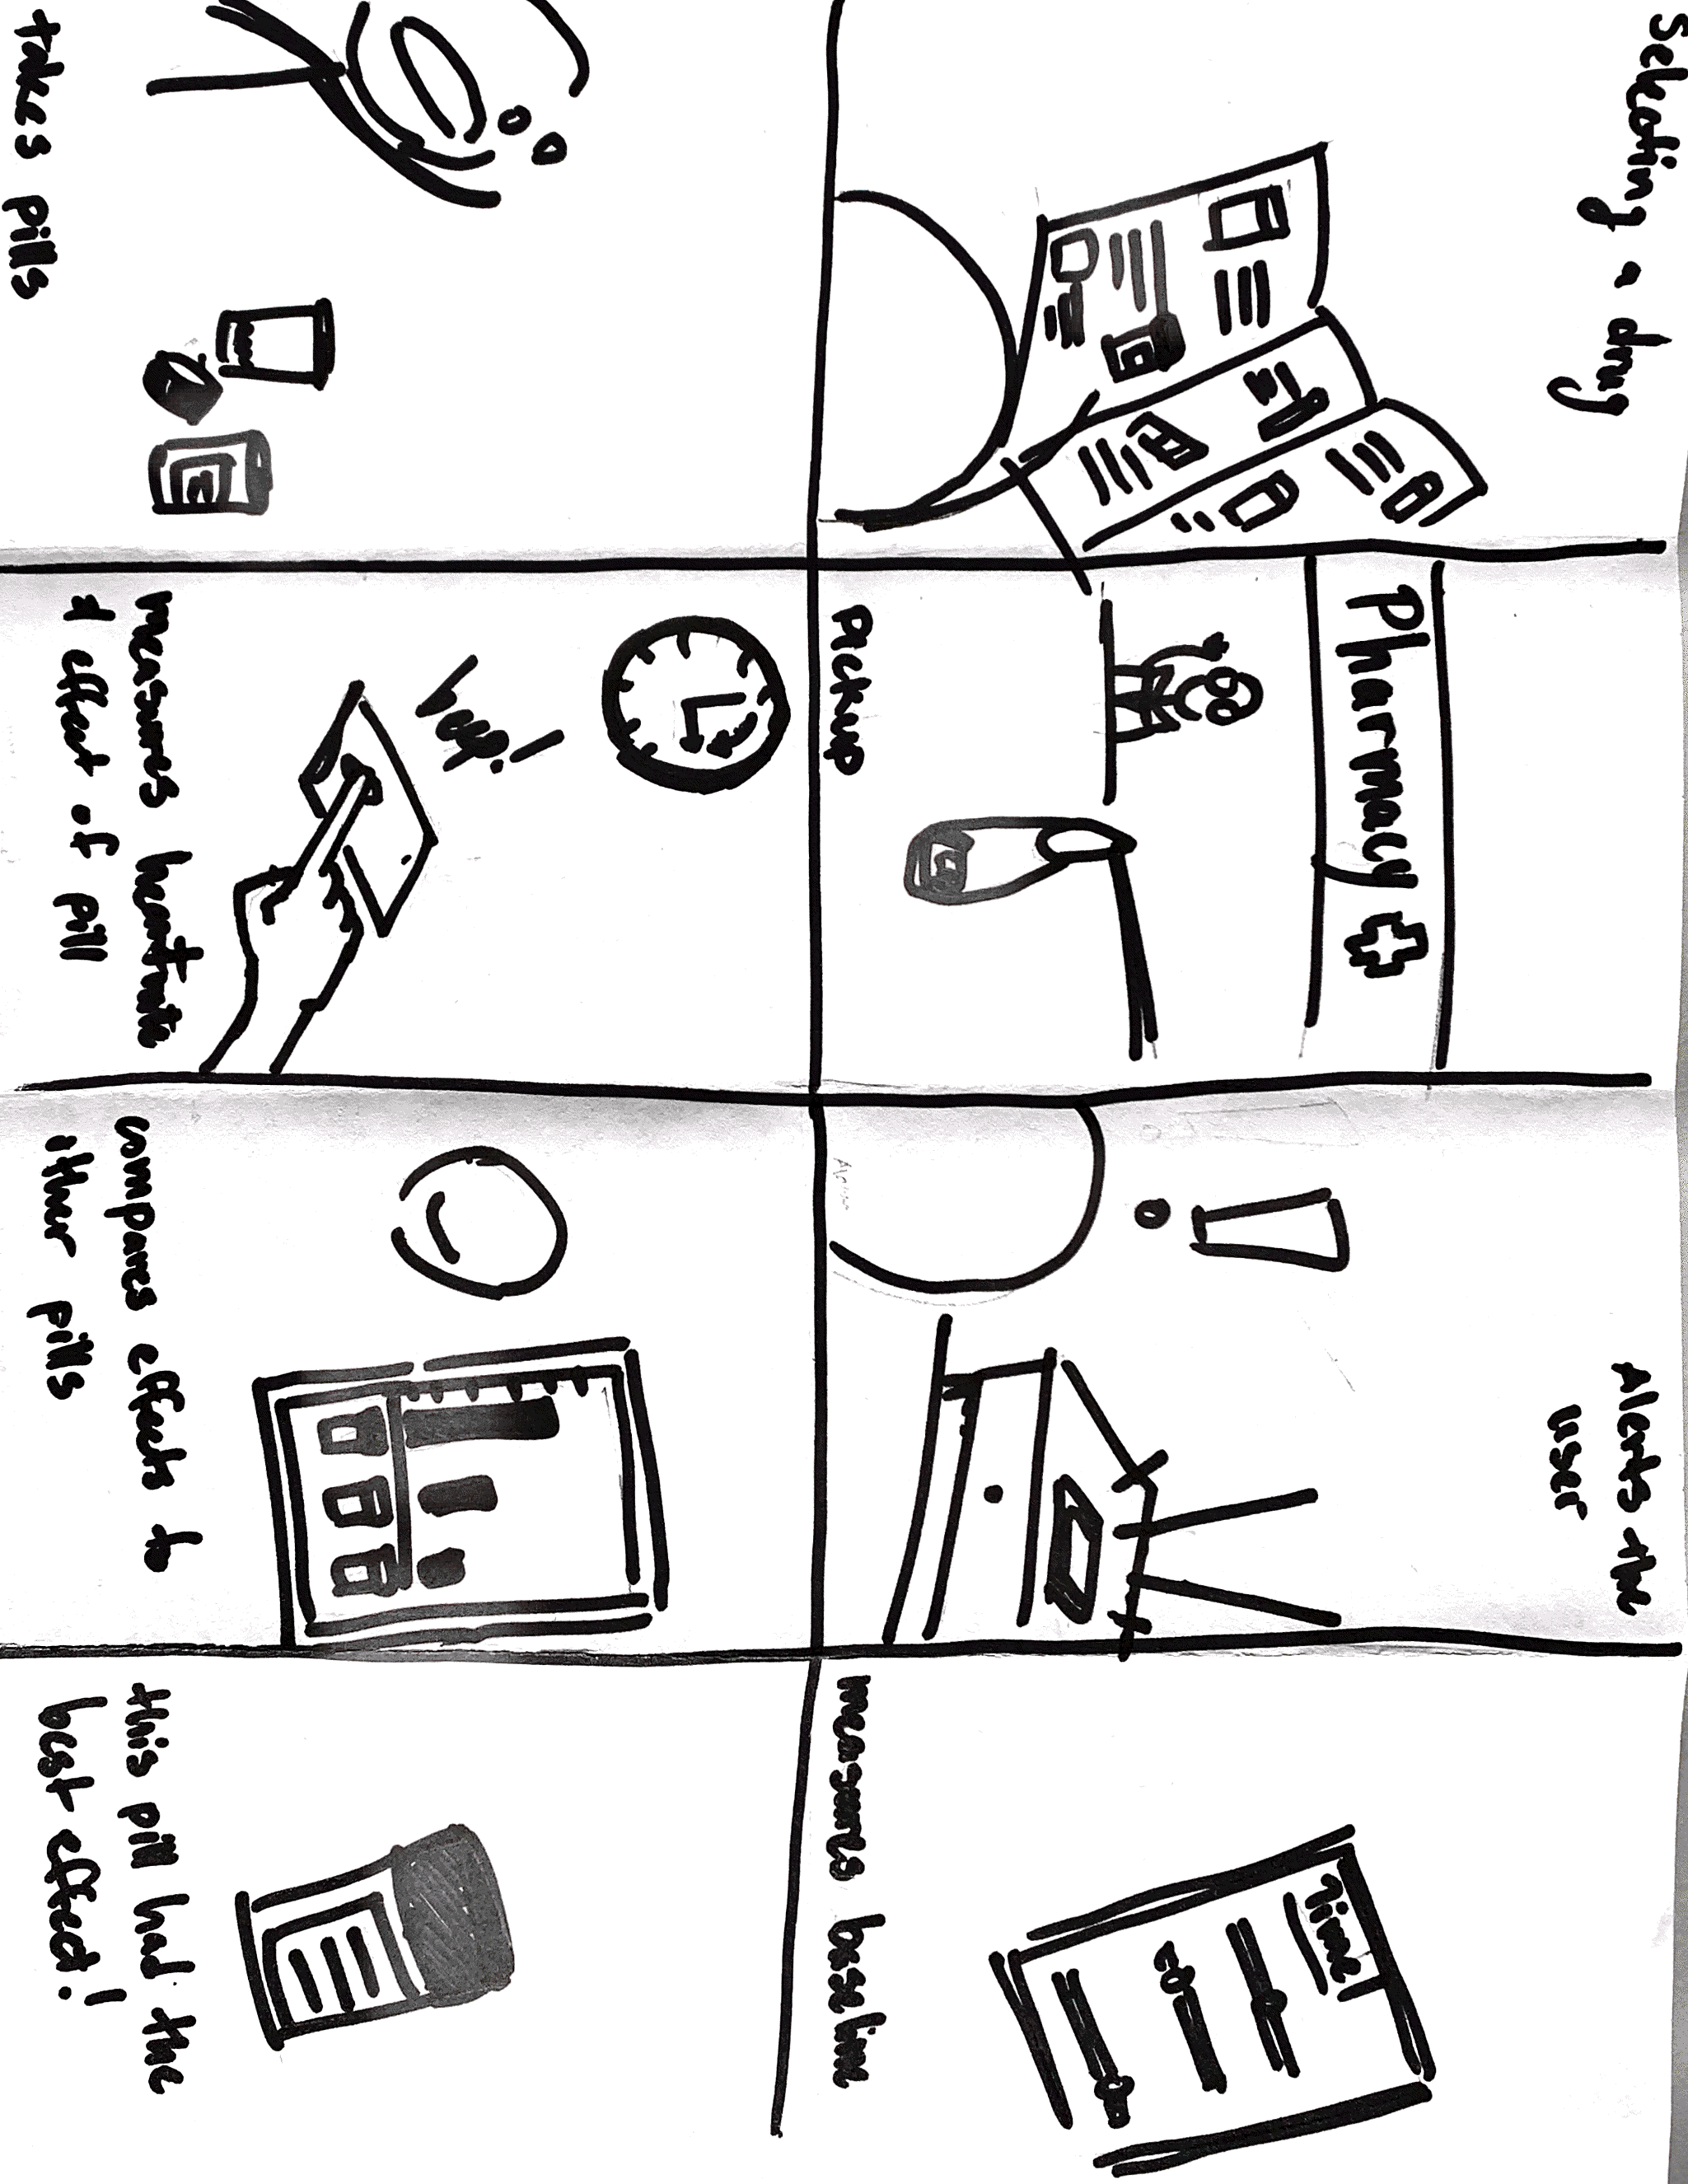 Selecting a drug
Pharmacy
Pickup
Alerts the
user
Time!
measures baseline
takes pills
measures heartrate
& effect of pill
compares effects to
other pills
this pill had the
best effect!